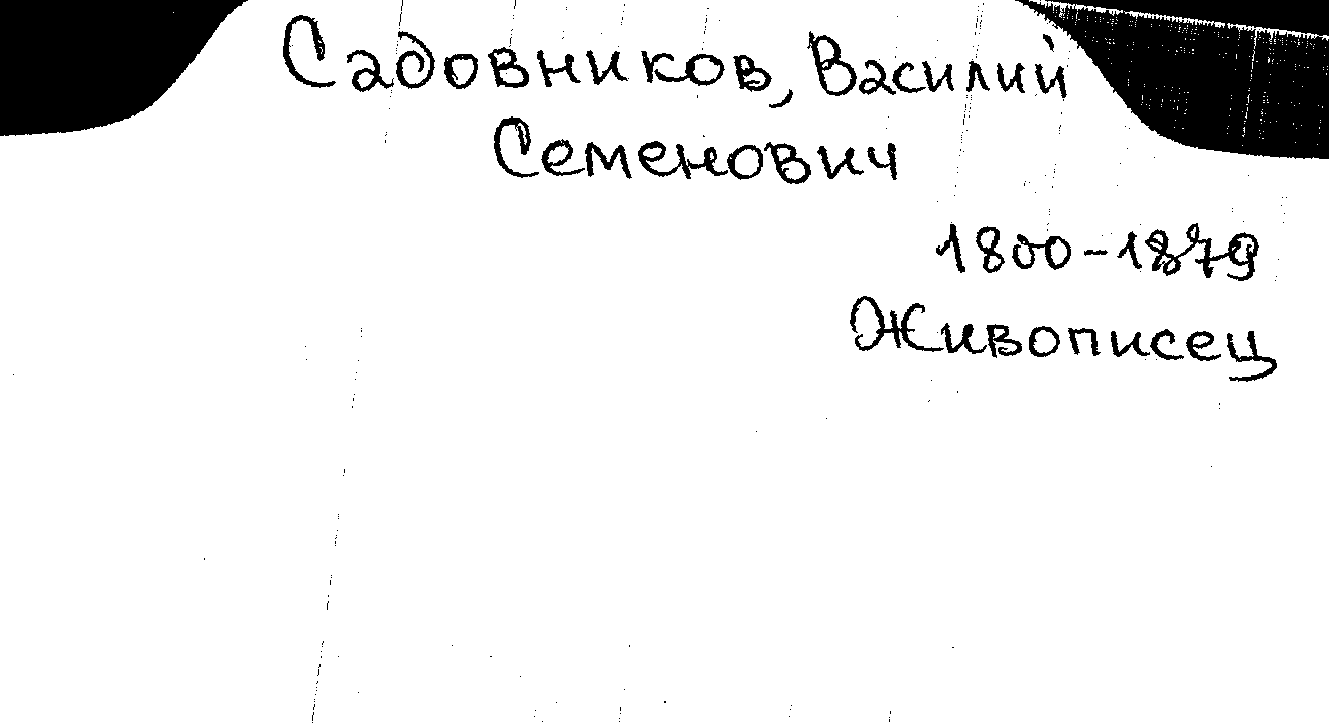 Садовников, Василий
Семенович
1800-1879
Живописец